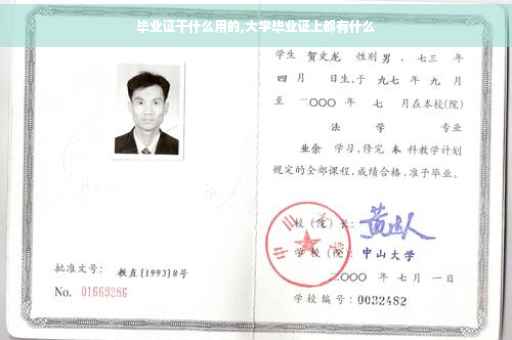 毕业证干什么用的,大学毕业证上都有什么
学生 贺文龙 性别 男 、七三 年
四 月 日生,于 九七 年 九 月
至 二〇〇〇 年 七 月在本校(院)
法 学 专业
业余 学习,修完 本 科教学计划
规定的全部课程,成绩合格,准予毕业。
校(院)长:
学校(院): 中山大学
二〇〇〇 年 七 月 一 日
学校编号: 0032482
批准文号: 教直[1993]8号
No. 01669286